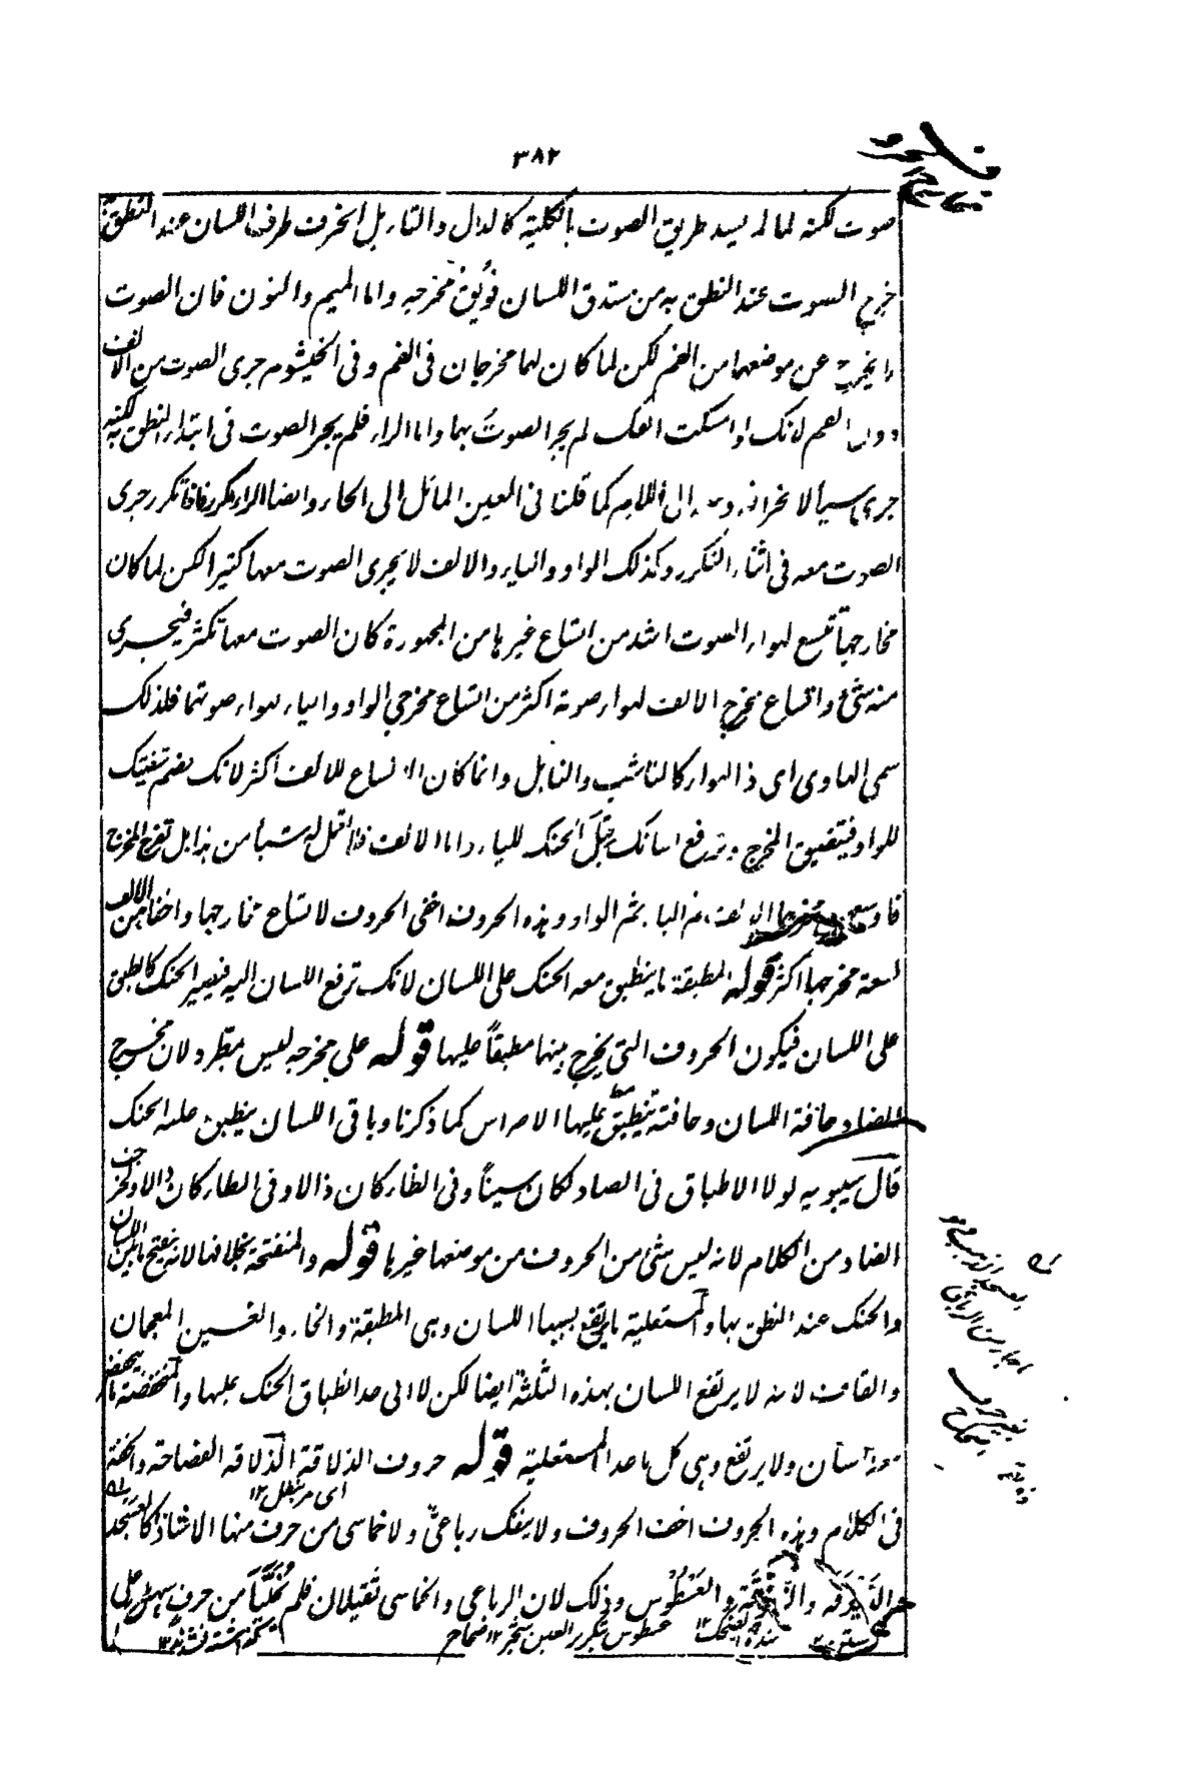 ٣٨٢
صوت لكنه لما لم يسد طريق الصوت بالكلية كالدال والتاء بل انحرف طرف اللسان عند النطق به
خرج الصوت عند النطق به من مستدق اللسان فويق مخرجه واما الميم والنون فان الصوت
لا يخرج عن موضعهما من الفم لكن لما كان لهما مخرجان فى الفم وفى الخيشوم جرى الصوت من الانف
دون الفم لانك لو امسكت انفك لم يجر الصوت بهما واما الراء فلم يجر الصوت فى ابتداء النطق به لكنه
جرى شيأ لانحرافه وميله إلى اللام كما قلنا فى العين المائل الى الحاء وايضا الراء مكرر فاذا تكرر جرى
الصوت معه فى اثناء التكرر وكذلك الواو والياء والالف لا يجرى الصوت معها كثيرا لكن لما كان
مخارجها تتسع لهواء الصوت اشد من اتساع غيرها من المجهورة كان الصوت معها تكثر فيجرى
منه شئ واتساع مخرج الالف لهواء صوته اكثر من اتساع مخرجى الواو والياء لهواء صوتهما فلذلك
سمى الهاوى اى ذا الهواء كالناشب والنابل وانما كان الاتساع للالف اكثر لانك تضم شفتيك
للواو فيتضيق المخرج وترفع لسانك قبل الحنك للياء واما الالف فلا تعمل له شيأ من هذا بل تفرج المخرج
فاوسعها مخرجا الالف ثم الياء ثم الواو وهذه الحروف اخفى الحروف لاتساع مخارجها واخفاهن الالف
لسعة مخرجها اكثر قوله المطبقة ما ينطبق معه الحنك على اللسان لانك ترفع اللسان اليه فيصير الحنك كالطبق
على اللسان فيكون الحروف التى يخرج بينهما مطبقاً عليها قوله على مخرجه ليس مطرد لان مخرج
الضاد حافة اللسان وحافته تنطبق عليها الاضراس كما ذكرنا وباقى اللسان ينطبق عليه الحنك
قال سيبويه لولا الاطباق فى الصاد لكان سيناً وفى الظاء كان ذالا وفى الطاء كان دالا ولخرجت
الضاد من الكلام لانه ليس شئ من الحروف من موضعها غيرها قوله والمنفتحة بخلافها لانه ينفتح ما بين اللسان
والحنك عند النطق بها والمستعلية ما يرتفع بسببها اللسان وهى المطبقة والخاء والغين المعجمتان
والقاف لانه لا يرتفع اللسان بهذه الثلثة ايضا لكن لا الى حد انطباق الحنك عليها والمنخفضة ما ينخفض
معه اللسان ولا يرتفع وهى كل ما عدا المستعلية قوله حروف الذلاقة الذلاقة الفصاحة والخفة
فى الكلام وهذه الحروف اخف الحروف ولا ينفك رباعى ولا خماسى من حرف منها الا شاذا كالعسجد
والدهدقة والزهزقة والعسطوس وذلك لان الرباعى والخماسى ثقيلان فلم يخليا من حرف سهل على